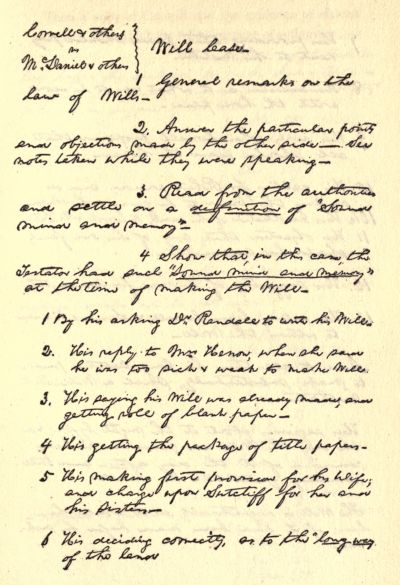 Cornell & others
vs
McDaniel & others } Will Case
1 General remarks on the
law of Wills—
2. Answer the particular points
and objections made by the other side— See
notes taken while they were speaking—
3. Read from the authorities
and settle on a definition of "Sound
mind and memory"—
4 Show that, in this case, the
Testator had such "Sound mind and memory"
at the time of making the Will—
1 By his asking Dr. Randall to write his Will—
2. His reply to Mrs , when she said
he was too sick & weak to make Will.
3. His saying his Will was already made, and
getting roll of blank paper—
4 His getting the package of title papers—
5 His making first provision for his Wife;
and charge upon Sutcliff for her and
his sisters—
6 His deciding correctly, as to the "long way
of the land